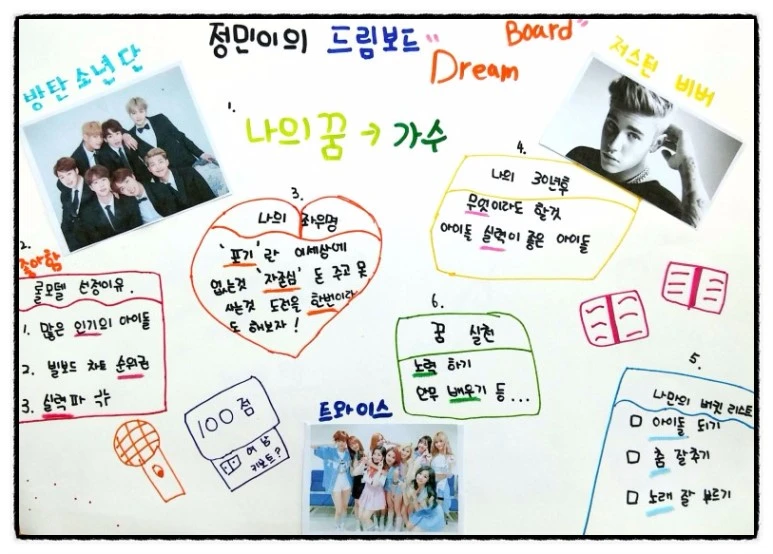 정민이의 드림보드"
Dream Board"
방탄소년단
저스틴 비버
1.
나의 꿈 → 가수
2.
좋아함
롤모델 선정이유.
1. 많은 인기의 아이돌
2. 빌보드 차트 순위권
3. 실력파 가수
3.
나의 좌우명
'포기'란 이세상에
없는것 '자존심' 돈 주고 못
사는것 도전을 한번이라
도 해보자!
4.
나의 30년후
무엇이라도 할것
아이돌 실력이 좋은 아이돌
6.
꿈 실천
노력 하기
안무 배우기 등...
5.
나만의 버킷 리스트
아이돌 되기
춤 잘추기
노래 잘 부르기
100점
여 남
키보드?
트와이스